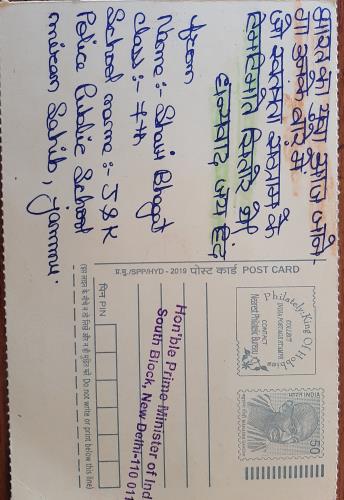 भारत का युवा आज जाने-
गा उनके बारे में
जो स्वतंत्रता संग्राम के
टिमटिमाते सितारे थे
धन्यवाद जय हिंद
From
Name:-
Class:- 7th
School name:- J&K
Police Public School
miran Sahib, Jammu.
प्र.मु./SPP/HYD - 2019 पोस्ट कार्ड POST CARD
Philately-King Of Hobbies
COLLECT
INDIA POSTAGE STAMPS
CONTACT
Nearest Philatelic Bureau
भारत INDIA
50
Hon'ble Prime Minister of Ind
South Block, New Delhi-110 011
पिन PIN
(इस लाइन के नीचे न तो लिखें और न ही मुद्रित करें Do not write or print below this line)